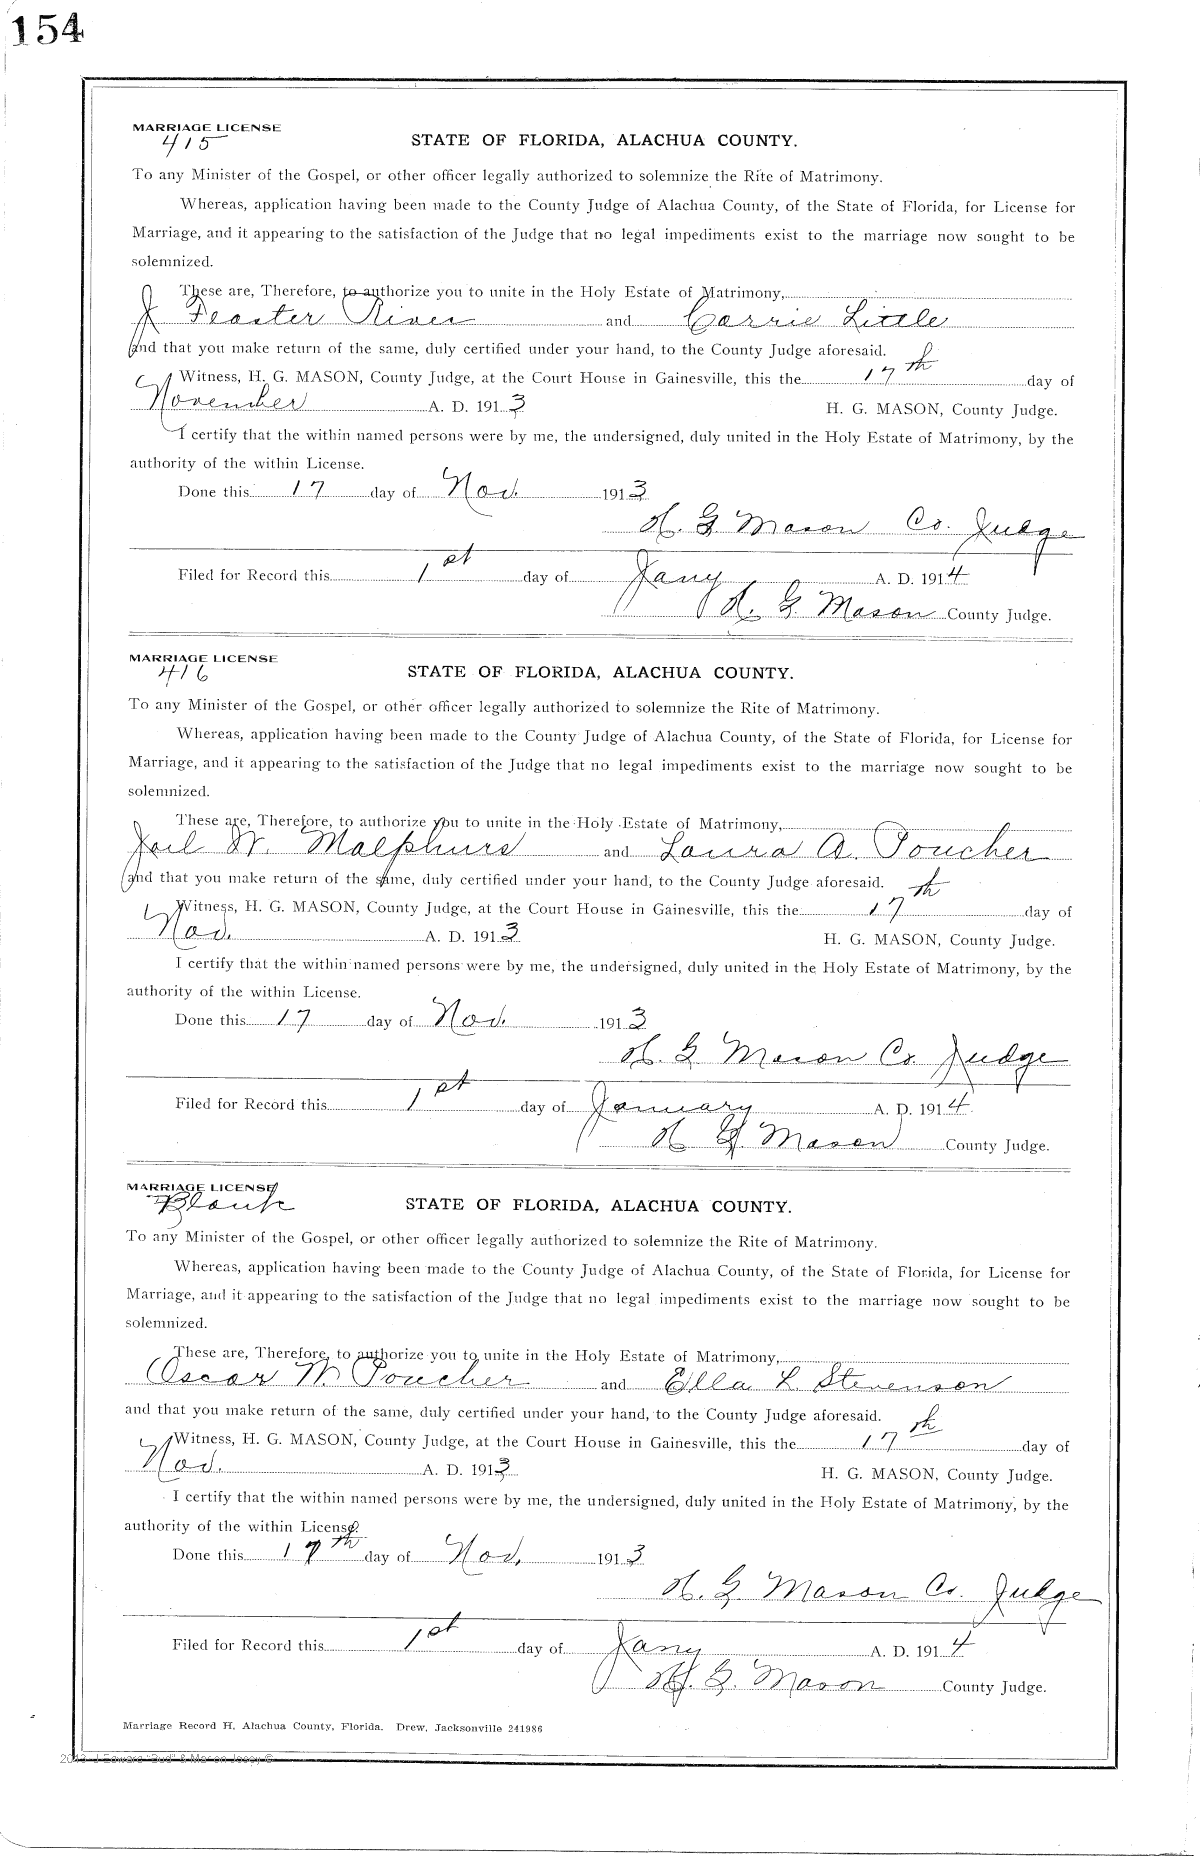 154
MARRIAGE LICENSE
415
STATE OF FLORIDA, ALACHUA COUNTY.
To any Minister of the Gospel, or other officer legally authorized to solemnize the Rite of Matrimony.
Whereas, application having been made to the County Judge of Alachua County, of the State of Florida, for License for
Marriage, and it appearing to the satisfaction of the Judge that no legal impediments exist to the marriage now sought to be
solemnized.
These are, Therefore, to authorize you to unite in the Holy Estate of Matrimony,
J Feaster River and Carrie Little
and that you make return of the same, duly certified under your hand, to the County Judge aforesaid.
Witness, H. G. MASON, County Judge, at the Court House in Gainesville, this the 17th day of
November A. D. 1913 H. G. MASON, County Judge.
I certify that the within named persons were by me, the undersigned, duly united in the Holy Estate of Matrimony, by the
authority of the within License.
Done this 17 day of Nov. 1913
H. G Mason Co. Judge
Filed for Record this 1st day of Jany A. D. 1914
H. G. Mason County Judge.
MARRIAGE LICENSE
416
STATE OF FLORIDA, ALACHUA COUNTY.
To any Minister of the Gospel, or other officer legally authorized to solemnize the Rite of Matrimony.
Whereas, application having been made to the County Judge of Alachua County, of the State of Florida, for License for
Marriage, and it appearing to the satisfaction of the Judge that no legal impediments exist to the marriage now sought to be
solemnized.
These are, Therefore, to authorize you to unite in the Holy Estate of Matrimony,
Joil W. Malphurs and Laura A. Poucher
and that you make return of the same, duly certified under your hand, to the County Judge aforesaid.
Witness, H. G. MASON, County Judge, at the Court House in Gainesville, this the 17th day of
Nov. A. D. 1913 H. G. MASON, County Judge.
I certify that the within named persons were by me, the undersigned, duly united in the Holy Estate of Matrimony, by the
authority of the within License.
Done this 17 day of Nov. 1913
H. G Mason Co. Judge
Filed for Record this 1st day of January A. D. 1914
H G Mason County Judge.
MARRIAGE LICENSE
Blank
STATE OF FLORIDA, ALACHUA COUNTY.
To any Minister of the Gospel, or other officer legally authorized to solemnize the Rite of Matrimony.
Whereas, application having been made to the County Judge of Alachua County, of the State of Florida, for License for
Marriage, and it appearing to the satisfaction of the Judge that no legal impediments exist to the marriage now sought to be
solemnized.
These are, Therefore, to authorize you to unite in the Holy Estate of Matrimony,
Oscar M. Poucher and Ella L Stevenson
and that you make return of the same, duly certified under your hand, to the County Judge aforesaid.
Witness, H. G. MASON, County Judge, at the Court House in Gainesville, this the 17th day of
Nov. A. D. 1913 H. G. MASON, County Judge.
I certify that the within named persons were by me, the undersigned, duly united in the Holy Estate of Matrimony, by the
authority of the within License.
Done this 17th day of Nov. 1913
H. G Mason Co. Judge
Filed for Record this 1st day of Jany A. D. 1914
H. G. Mason County Judge.
Marriage Record H, Alachua County, Florida. Drew, Jacksonville 241986